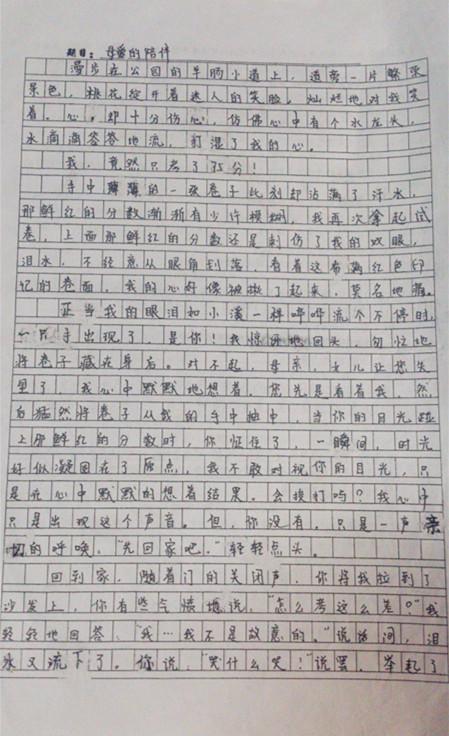 题目：母爱的陪伴
漫步在公园的羊肠小道上，道旁一片繁张
景色，桃花绽开着迷人的笑脸。灿烂地对我笑
着。心。却十分伤心，仿佛心中有个水龙头，
水滴滴答答地流，打湿了我的心。
我，竟然只考了75分！
手中薄薄的一张卷子此刻却沾满了汗水，
那鲜红的分数渐渐有少许模糊，我再次拿起试
卷，上面那鲜红的分数还是刺伤了我的双眼，
泪水，不经意从眼角划落，看着这布满红色印
记的卷面，我的心好像被揪了起来，莫名地痛。
正当我的眼泪如小溪一样哗哗流个不停时，
一只手出现了，是你！我惊讶地回头，匆忙地
将卷子藏在身后。对不起，母亲，女儿让您失
望了，我心中默默地想着，您先是看着我，然
后猛然将卷子从我的手中抽中，当你的目光碰
上那鲜红的分数时，你怔住了，一瞬间，时光
好似凝固在了原点，我不敢对视你的目光，只
是在心中默默的想着结果。会挨打吗？我心中
只是出现这个声音。但，你没有，只是一声亲
切的呼唤，"先回家吧，"轻轻点头。
回到家，随着门的关闭声，你将我拉到了
沙发上，你有些气愤地说，"怎么考这么差？"我
轻轻地回答，"我…我不是故意的。"说话间，泪
水又流下了。你说，"哭什么哭！"说罢，举起了